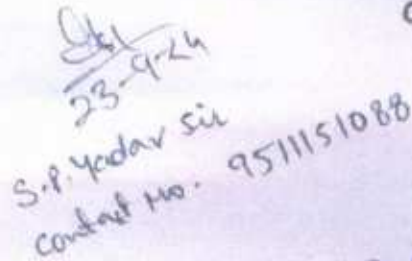 23-9-24
S.P. Yadav Sir
Contact No. 9511151088